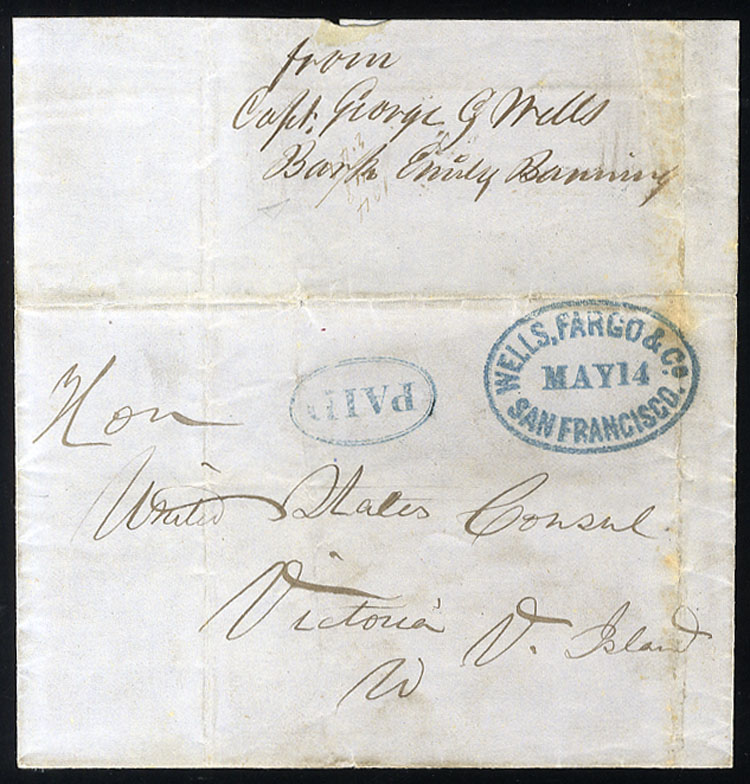 from
Capt. George G Wells
Bark Emily Banning
WELLS, FARGO & Co.
MAY 14
SAN FRANCISCO.
PAID
Hon
United States Consul
Victoria V. Island